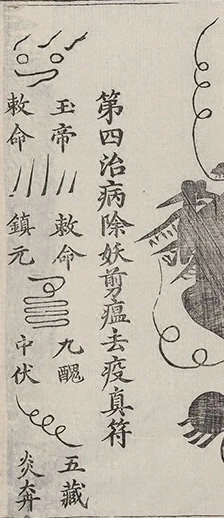 第四治病除妖剪瘟去疫真符
玉帝
敕命
九醜
五藏
敕命
鎮元
中伏
炎奔